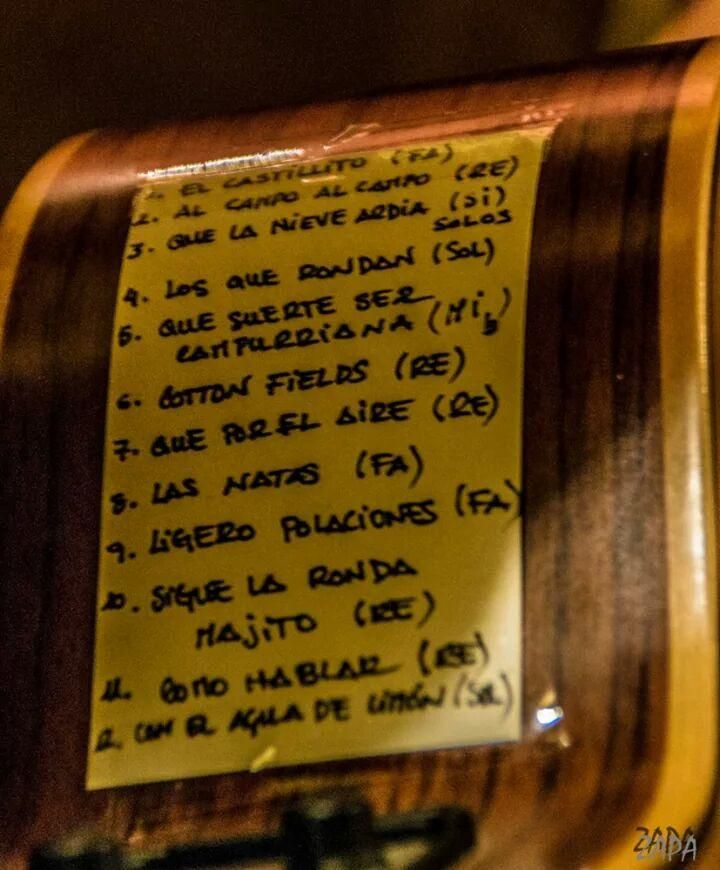 1. EL CASTILLITO (FA)
2. AL CAMPO AL CAMPO (RE)
3. QUE LA NIEVE ARDIA (Si)
SOLOS
4. LOS QUE RONDAN (SOL)
5. QUE SUERTE SER
CAMPURRIANA (Mib)
6. COTTON FIELDS (RE)
7. QUE POR EL AIRE (RE)
8. LAS NATAS (FA)
9. LIGERO POLACIONES (FA)
10. SIGUE LA RONDA
MAJITO (RE)
11. COMO HABLAR (RE)
12. CON EL AGUA DE LIMÓN (SOL)
ZAPA